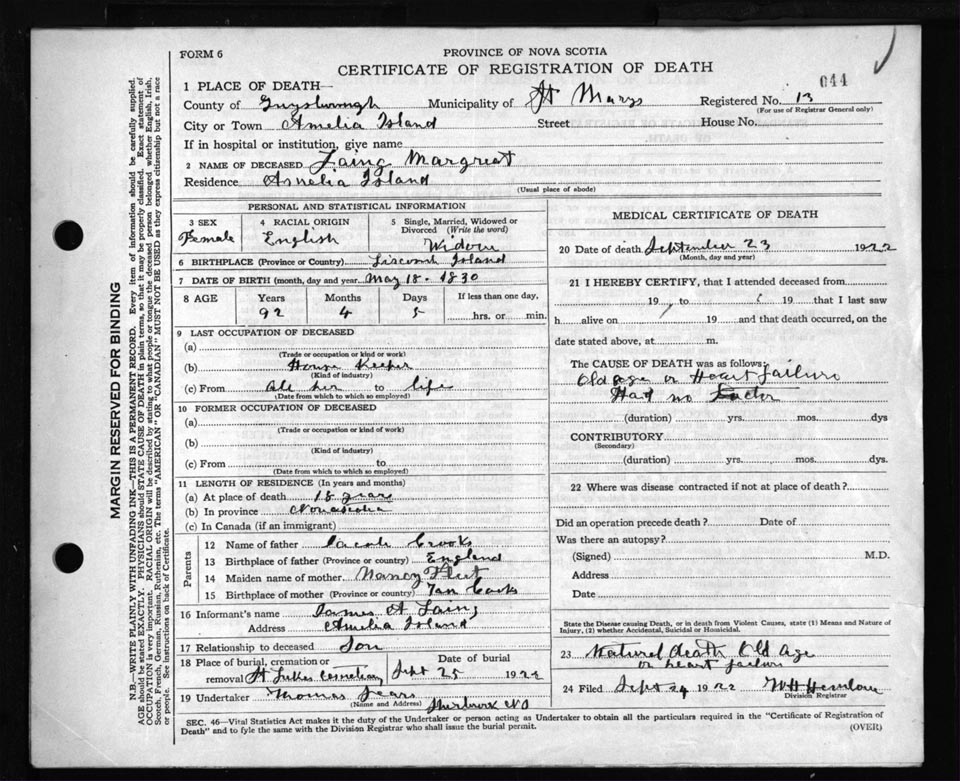 FORM 6
PROVINCE OF NOVA SCOTIA
CERTIFICATE OF REGISTRATION OF DEATH
644
1 PLACE OF DEATH—
County of Guysborough Municipality of St Marys Registered No. 13
(For use of Registrar General only)
City or Town Amelia Island Street House No.
If in hospital or institution, give name
2 NAME OF DECEASED Laing Margreat
Residence Amelia Island
(Usual place of abode)
PERSONAL AND STATISTICAL INFORMATION
3 SEX 4 RACIAL ORIGIN 5 Single, Married, Widowed or Divorced (Write the word)
Female English Widow
6 BIRTHPLACE (Province or Country) Liscomb Island
7 DATE OF BIRTH (month, day and year) May 18 - 1830
8 AGE Years Months Days If less than one day,
92 4 5 hrs. or min.
9 LAST OCCUPATION OF DECEASED
(a)
(Trade or occupation or kind or work)
(b) House Keeper
(Kind of industry)
(c) From All her to life
(Date from which to which so employed)
10 FORMER OCCUPATION OF DECEASED
(a)
(Trade or occupation or kind of work)
(b)
(Kind of industry)
(c) From to
(Date from which to which so employed)
11 LENGTH OF RESIDENCE (In years and months)
(a) At place of death 18 years
(b) In province Novascotia
(c) In Canada (if an immigrant)
Parents
12 Name of father Jacob Crooks
13 Birthplace of father (Province or country) England
14 Maiden name of mother Nancy
15 Birthplace of mother (Province or country)
16 Informant's name James A Laing
Address Amelia Island
17 Relationship to deceased Son
18 Place of burial, cremation or removal St Lukes Cemetery Date of burial Sept 25 1922
19 Undertaker Thomas
(Name and Address) Sherbrook NS
MEDICAL CERTIFICATE OF DEATH
20 Date of death September 23 1922
(Month, day and year)
21 I HEREBY CERTIFY, that I attended deceased from
19 to 19 that I last saw
h alive on 19 and that death occurred, on the
date stated above, at m.
The CAUSE OF DEATH was as follows:
Old age or Heart failure
Had no Doctor
(duration) yrs. mos. dys
CONTRIBUTORY
(Secondary)
(duration) yrs. mos. dys.
22 Where was disease contracted if not at place of death?
Did an operation precede death? Date of
Was there an autopsy?
(Signed) M.D.
Address
Date
State the Disease causing Death, or in death from Violent Causes, state (1) Means and Nature of
Injury, (2) whether Accidental, Suicidal or Homicidal.
23 Natural death Old Age
or heart failure
24 Filed Sept 24 1922 W H Hemlow
Division Registrar
SEC. 46—Vital Statistics Act makes it the duty of the Undertaker or person acting as Undertaker to obtain all the particulars required in the "Certificate of Registration of
Death" and to fyle the same with the Division Registrar who shall issue the burial permit.
(OVER)
MARGIN RESERVED FOR BINDING
N.B.—WRITE PLAINLY WITH UNFADING INK—THIS IS A PERMANENT RECORD. Every item of information should be carefully supplied.
AGE should be stated EXACTLY. PHYSICIANS should STATE CAUSE OF DEATH in plain terms, so that it may be properly classified. Exact statement of
OCCUPATION is very important. RACIAL ORIGIN will be described by stating to what people or tongue the deceased person belonged whether English, Irish,
Scotch, French, German, Russian, Ruthenian, etc. The terms "AMERICAN" OR "CANADIAN" MUST NOT BE USED as they express citizenship but not a race
or people. See instructions on back of Certificate.